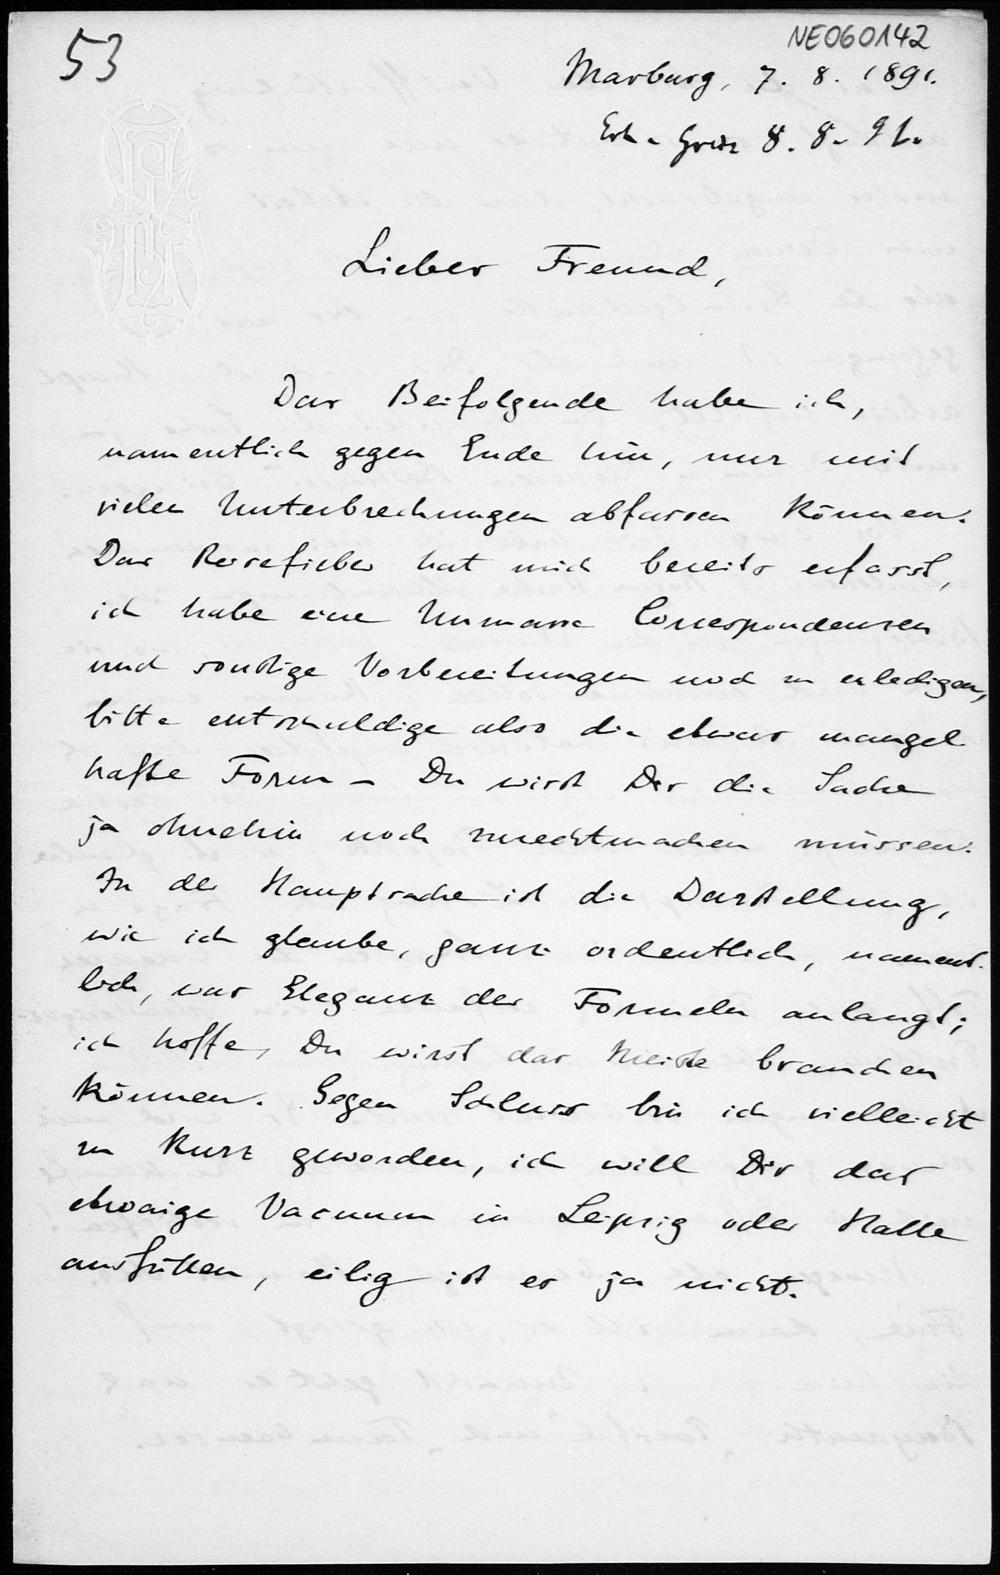 53
NE060142
Marburg, 7. 8. 1891.
Erh. Graz 8. 8. 91.
Lieber Freund,
Das Beifolgende habe ich,
namentlich gegen Ende hin, nur mit
vielen Unterbrechungen abfassen können.
Das Reisefieber hat mich bereits erfasst,
ich habe eine Unmasse Correspondenzen
und sonstige Vorbereitungen noch zu erledigen,
bitte entschuldige also die etwas mangel
hafte Form – Du wirst Dir die Sache
ja ohnehin noch zurechtmachen müssen.
In der Hauptsache ist die Darstellung,
wie ich glaube, ganz ordentlich, nament-
lich, was Eleganz der Formeln anlangt;
ich hoffe, Du wirst das Meiste brauchen
können. Gegen Schluss bin ich vielleicht
zu kurz geworden, ich will Dir das
etwaige Vacuum in Leipzig oder Halle
ausfüllen, eilig ist es ja nicht.